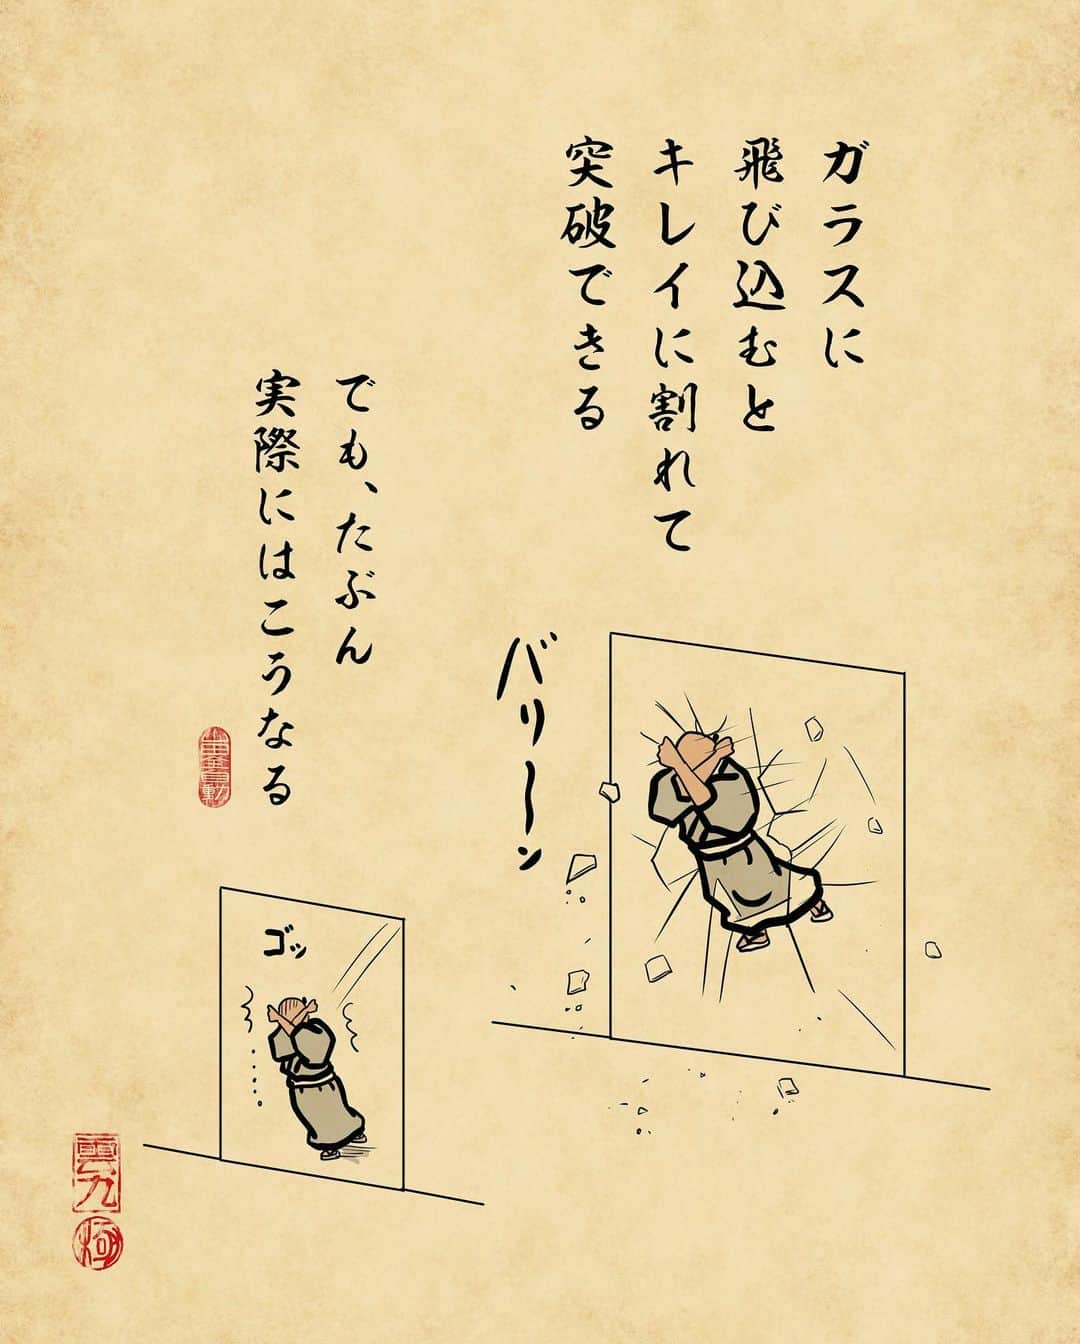 ガラスに
飛び込むと
キレイに割れて
突破できる
バリーン
でも、たぶん
実際にはこうなる
ゴッ